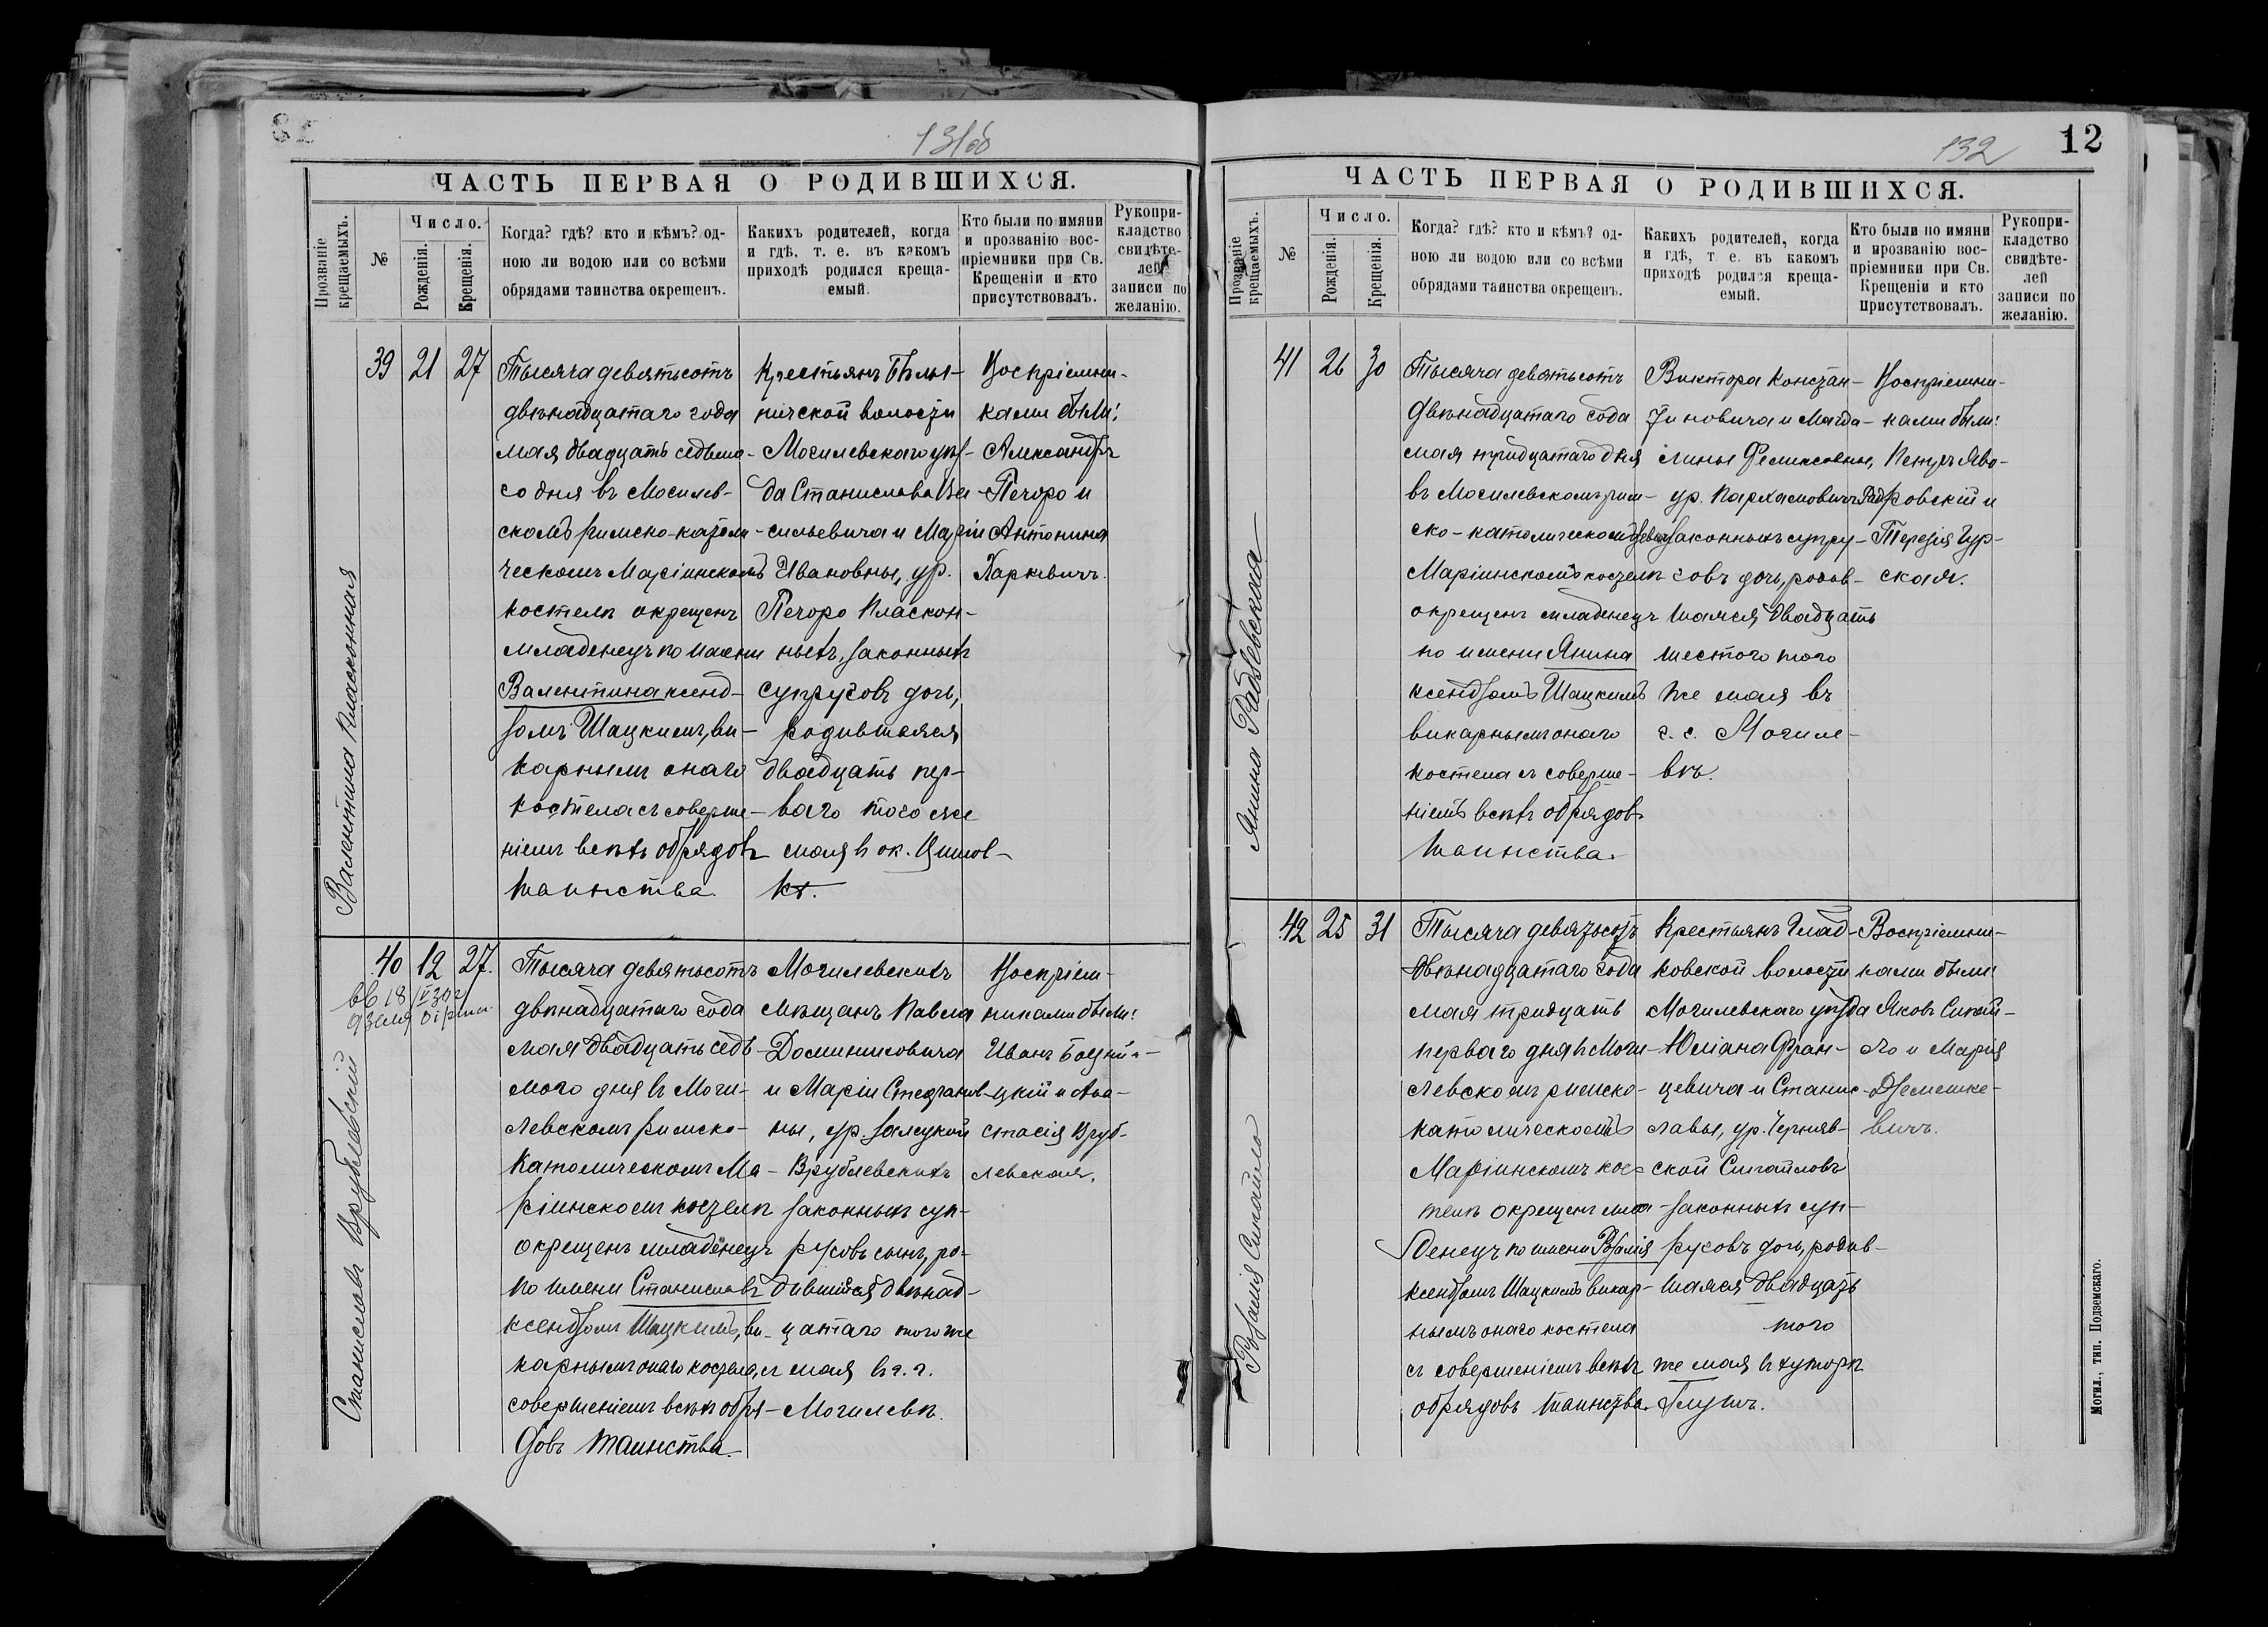 131об
ЧАСТЬ ПЕРВАЯ О РОДИВШИХСЯ.
Прозваніе крещаемыхъ.
№
Число.
Рожденія.
Крещенія.
Когда? гдѣ? кто и кѣмъ? од-
ною ли водою или со всѣми
обрядами таинства окрещенъ.
Какихъ родителей, когда
и гдѣ, т. е. въ какомъ
приходѣ родился креща-
емый.
Кто были по имяни
и прозванію вос-
пріемники при Св.
Крещеніи и кто
присутствовалъ.
Рукопри-
кладство
свидѣте-
лей
записи по
желанію.
Валентина Пласконная
39
21
27
Тысяча девятьсотъ
двѣнадцатаго года
мая двадцать седьма-
го дня въ Могилев-
скомъ римско-католи-
ческомъ Маріинскомъ
костелѣ окрещенъ
младенецъ по имени
Валентина ксенд-
зомъ Шацкимъ, ви-
карнымъ онаго
костела съ соверше-
ніемъ всѣхъ обрядовъ
таинства.
Крестьянъ Бѣлы-
ничской волости
Могилевскаго уѣз-
да Станислава Ва-
сильевича и Маріи
Ивановны, ур.
Печоро Пласкон-
ныхъ, законныхъ
супруговъ дочь,
родившаяся
двадцать пер-
ваго того же
мая в ок.
Воспріемни-
ками были:
Александръ
Печоро и
Антонина
Харкевичъ.
Станиславъ Врублевскій
40
12
27.
Тысяча девятьсотъ
двѣнадцатаго года
мая двадцать седь-
мого дня въ Моги-
левскомъ римско-
католическомъ Ма-
ріинскомъ костелѣ
окрещенъ младенецъ
по имени Станиславъ
ксендзомъ Шацкимъ, ви-
карнымъ онаго костела, съ
совершеніемъ всѣхъ обря-
довъ таинства.
Могилевскихъ
мѣщанъ Павла
Доминиковича
и Маріи Стефанов-
ны, ур. Залуцкой
Врублевскихъ
законныхъ суп-
руговъ сынъ, ро-
дившійся двѣнад-
цатаго того же
мая в г. г.
Могилевѣ.
Воспріем-
никами были:
Иванъ
и Ана-
стасія Вруб-
левская.
132
12
ЧАСТЬ ПЕРВАЯ О РОДИВШИХСЯ.
Прозваніе крещаемыхъ.
№
Число.
Рожденія.
Крещенія.
Когда? гдѣ? кто и кѣмъ? од-
ною ли водою или со всѣми
обрядами таинства окрещенъ.
Какихъ родителей, когда
и гдѣ, т. е. въ какомъ
приходѣ родился креща-
емый.
Кто были по имяни
и прозванію вос-
пріемники при Св.
Крещеніи и кто
присутствовалъ.
Рукопри-
кладство
свидѣте-
лей
записи по
желанію.
Янина Радзевская
41
26
30
Тысяча девятьсотъ
двѣнадцатаго года
мая тридцатаго дня
въ Могилевскомъ рим-
ско-католическомъ
Маріинскомъ костелѣ
окрещенъ младенецъ
по имени Янина
ксендзомъ Шацкимъ
викарнымъ онаго
костела съ соверше-
ніемъ всѣхъ обрядовъ
таинства.
Виктора Констан-
тиновича и Магда-
лины Феликсовны,
ур.
законныхъ супру-
говъ дочь, родив-
шаяся двадцать
шестого того
же мая въ
г. г. Могиле-
вѣ.
Воспріемни-
ками были:
Петръ Яво-
ровскій и
Терезія Гур-
ская.
Розалія Сикайло
42
25
31
Тысяча девятьсотъ
двѣнадцатаго года
мая тридцать
перваго дня в Моги-
левскомъ римско-
католическомъ
Маріинскомъ кос-
телѣ окрещенъ мла-
денецъ по имени Розалія
ксендзомъ Шацкимъ викар-
нымъ онаго костела
съ совершеніемъ всѣхъ
обрядовъ таинства.
Крестьянъ Глад-
ковской волости
Могилевскаго уѣзда
Юліана Фран-
цевича и Станис-
лавы, ур. Черняв-
ской Сикайловъ
законныхъ суп-
руговъ дочь, родив-
шаяся двадцать
того
же мая в хуторѣ
Воспріемни-
ками были:
Яковъ Сикай-
ло и Марія
Дземешке-
вичъ.
Могил., тип. Подземскаго.